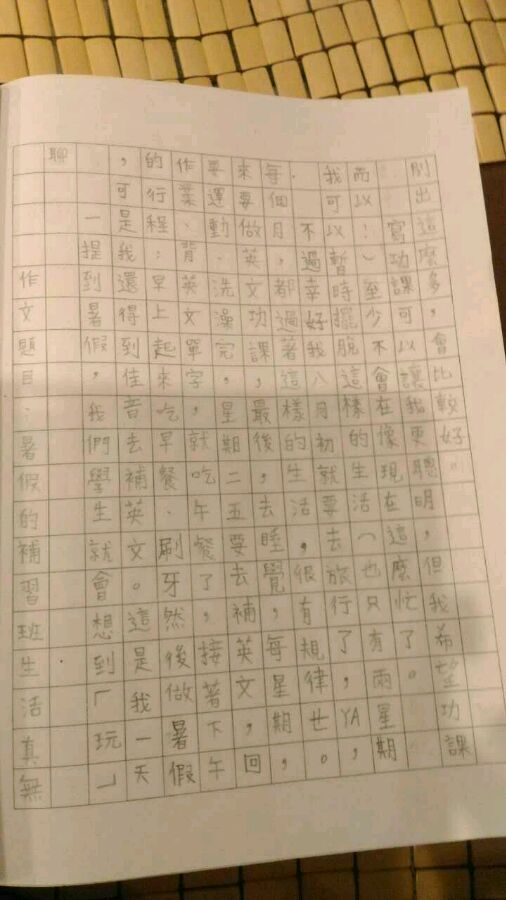 作文題目：暑假的補習班生活真無
聊
一提到暑假，我們學生就會想到「玩」
，可是我還得到佳音去補英文。這是我一天
的行程：早上起來吃早餐、刷牙然後做暑假
作業、背英文單字，就吃午餐了，接著下午
要運動、洗澡完，星期二五要去補英文，回
來要做英文功課，最後，去睡覺，每星期，
每個月，都過著這樣的生活，很有規律世。
不過幸好我八月初就要去旅行了，YA，
我可以暫時擺脫這樣的生活（也只有兩星期
而以！）至少不會在像現在這麼忙了。
寫功課可以讓我更聰明，但我希望功課
別出這麼多，會比較好。